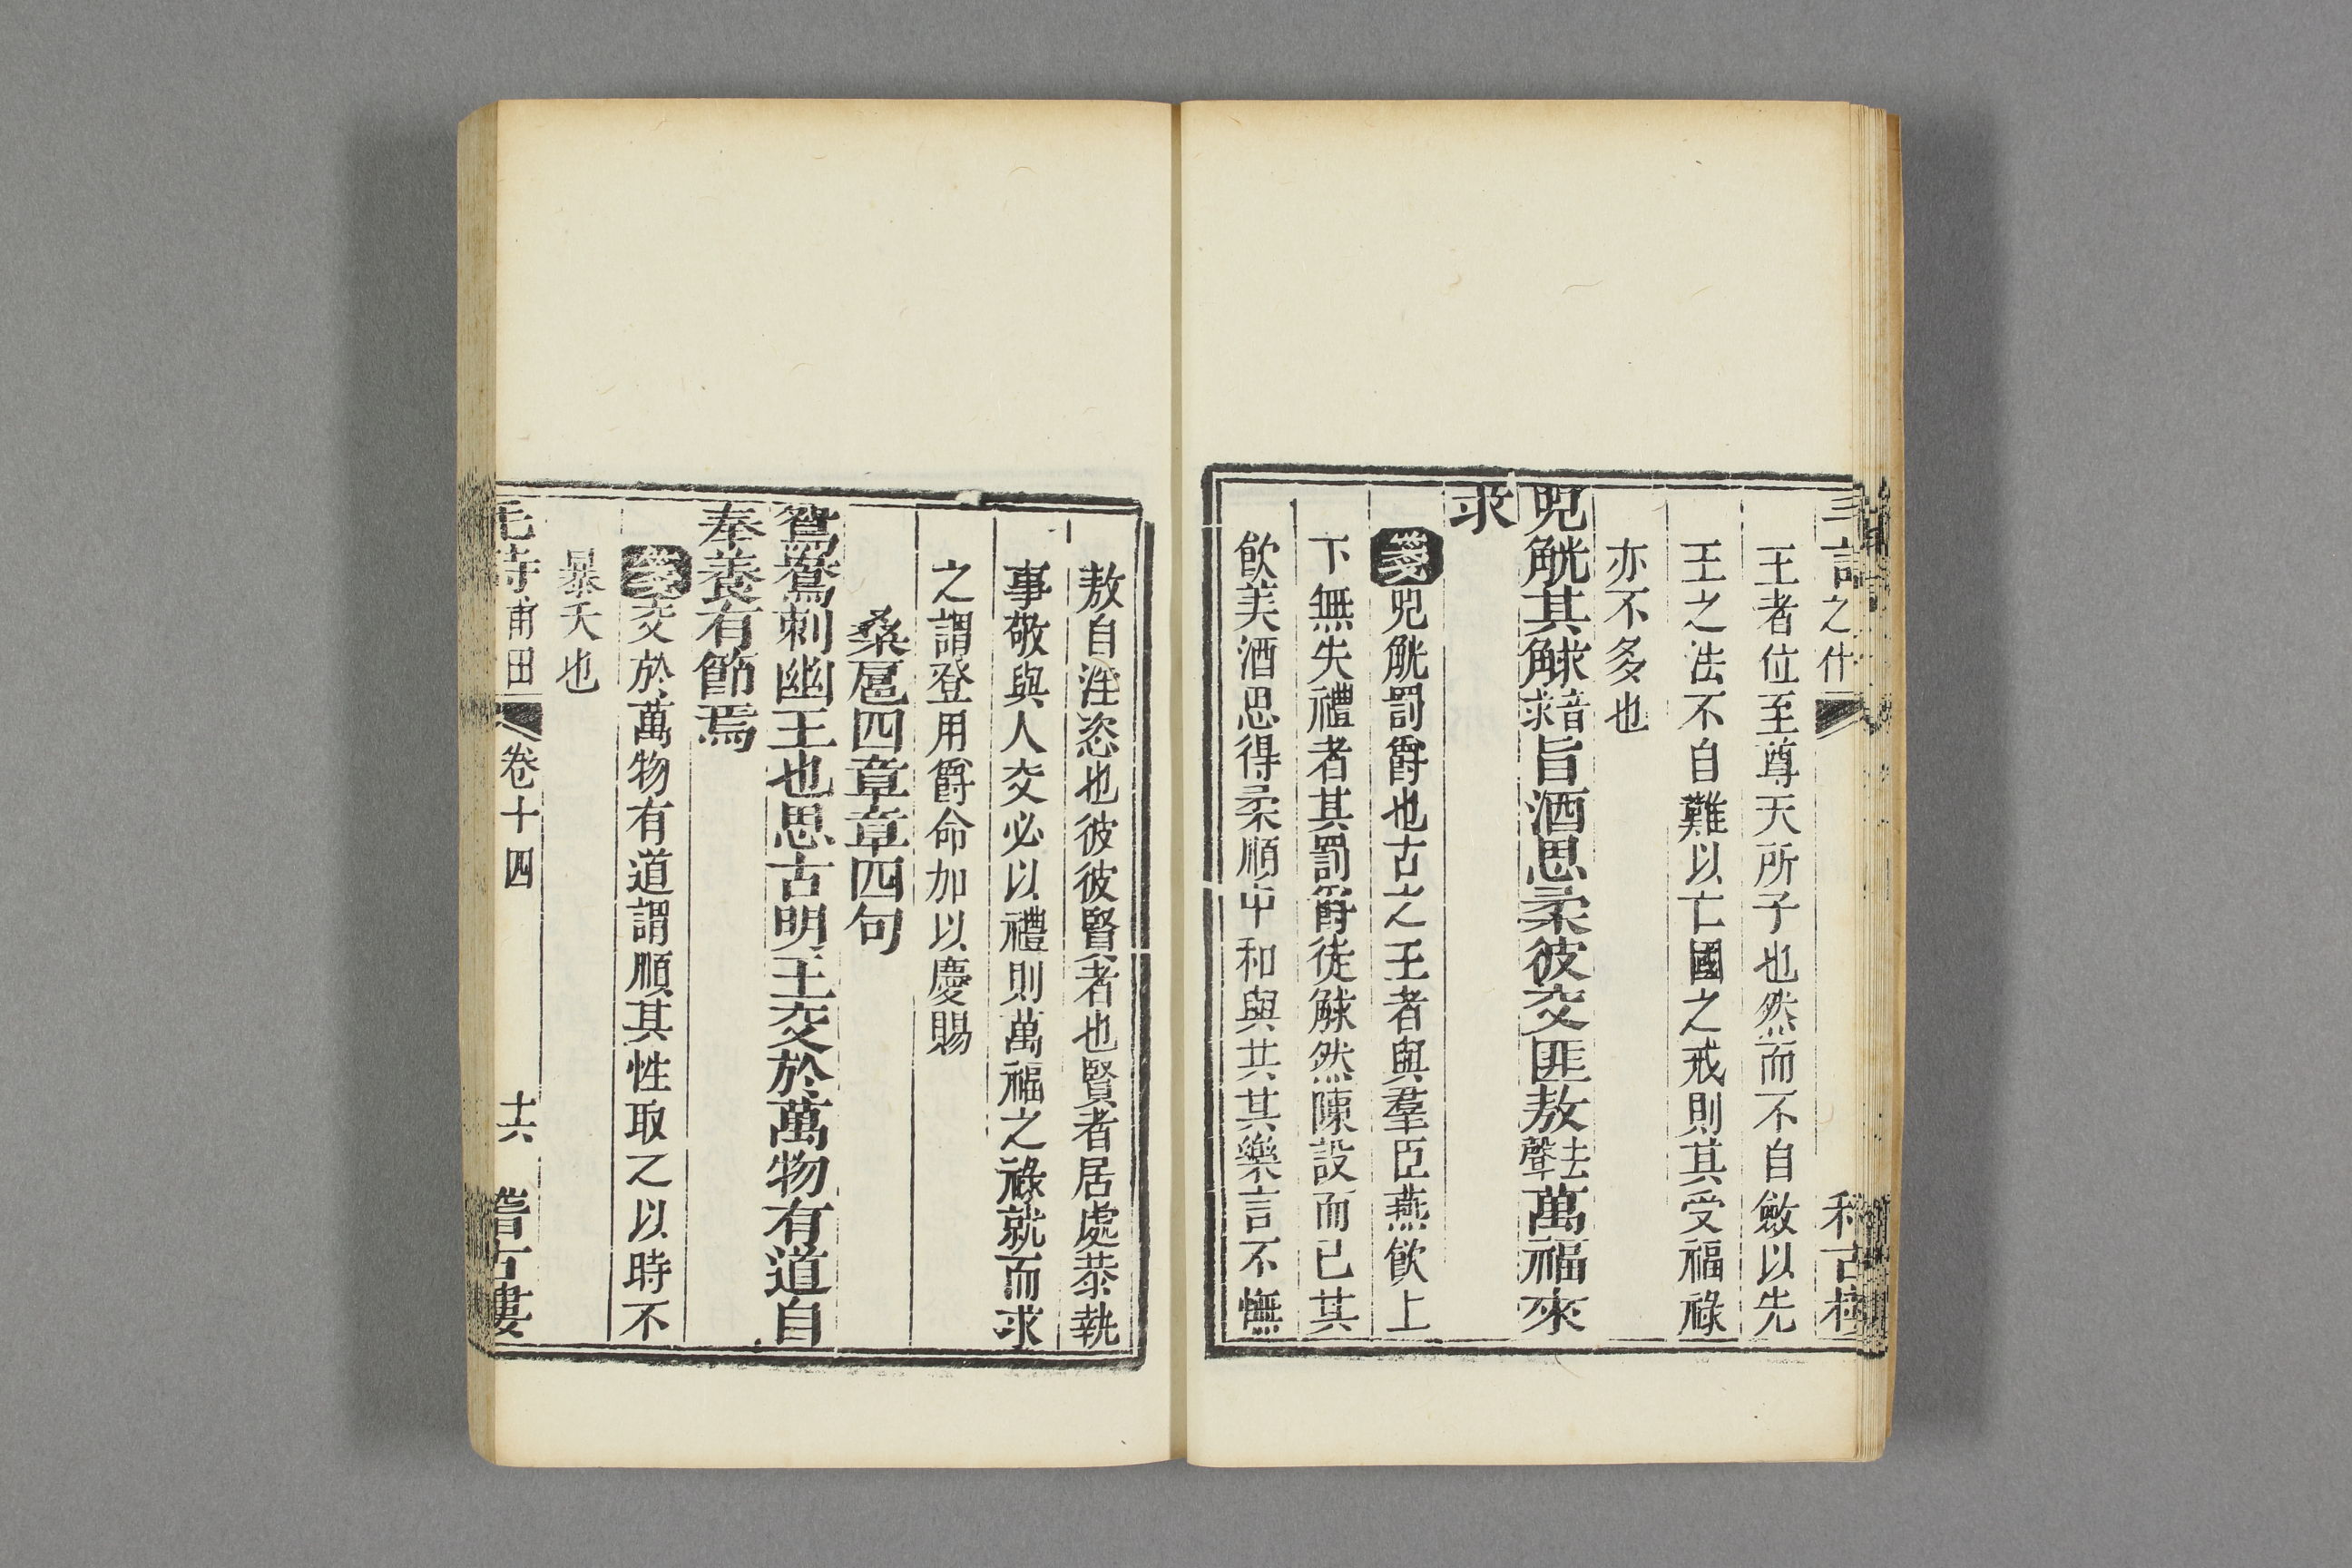 之什
王者位至尊天所子也然而不自斂以先
王之法不自難以亡國之戒則其受福祿
亦不多也
兕觥其觩音求旨酒思柔彼交匪敖去聲萬福來
求
箋兕觥罰爵也古之王者與羣臣燕飲上
下無失禮者其罰爵徒觩然陳設而已其
飲美酒思得柔順中和與共其樂言不憮
敖自淫恣也彼彼賢者也賢者居處恭執
事敬與人交必以禮則萬福之祿就而求
之謂登用爵命加以慶賜
桑扈四章章四句
鴛鴦刺幽王也思古明王交於萬物有道自
奉養有節焉
箋交於萬物有道謂順其性取之以時不
暴夭也
毛詩甫田 卷十四 十六